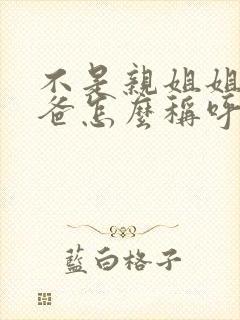 不是親姐姐
爸怎麼稱呼
藍白格子